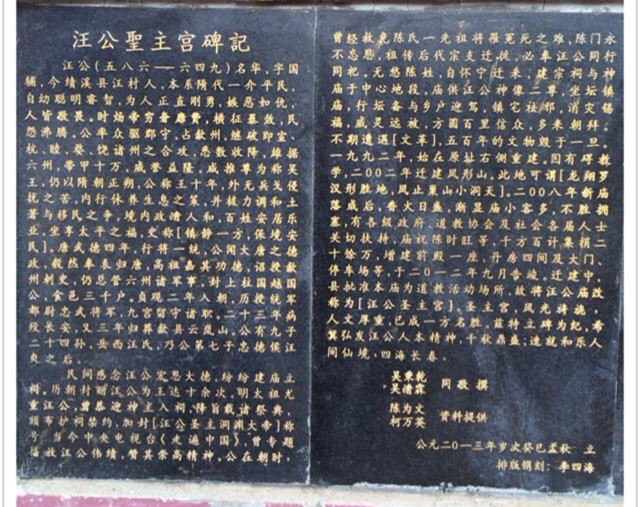 汪公聖主宫碑記
汪公(五八六一六四九)名华,字国
辅,今绩溪县汪村人,本系隋代一介平民,
自幼聪明睿智,为人正直刚勇,嫉恶如仇,
人皆敬畏。时炀帝穷奢靡费,横征暴敛,民
怨沸腾。公率众驱郡守,占歙州,继破即宣、
杭、睦、婺、饶诸州之合攻,悉数收降,雄据
六州,带甲十万,威誉益隆,咸推尊为称吴
王,仍以隋朝正朔,公称王十年,外无兵戈侵
扰之苦,内行休养生息之策,并极力调和土
著与移民之争,境内政清人和,百姓安居乐
业,坐享太平之福,史称[镇静一方,保境安
民],唐武德四年,行将一统,公闻大唐之德
政,毅然奉表归唐,高祖嘉其功德,诏授越歙
州刺史,仍总管六州诸军事,封上柱国越国
公,食邑三千户。贞观二年入朝,历授统军
都尉忠武将军,九宫留守诸职。二十三年病
殁长安,又三年归葬歙县云岚山。公有九侯
二十四孙,岳西汪氏,乃公第七子忠德侯汪
贞之后。
民间感念汪公宏恩大德,纷纷建庙立
祠。历朝封赠汪公为王达十余次。明太祖尤
重汪公,曾恭迎神主入祠,降旨载诸祭典,
颁布护祠禁约,加封[汪公圣主洞渊大帝]称
号。当今中央电视台《走遍中国》,曾专题
播放汪公伟绩,赞其崇高精神。公在朝时,
曾经救免陈氏一先祖将罹冤死之难,陈门永
不忘恩,祖传后代宗支迁徙,必奉汪公同行
同祀。无愁陈姓,自怀宁迁来,建宗祠与神
庙于中心地段,庙供汪公神像二尊,坐坛镇
庙,行坛备与乡户迎驾,镇宅社邪,消灾锡
福,威灵远被,方圆百里信众,多来朝拜,
不期遭遇[文革],五百年的文物毁于一旦。
一九九二年,始在原址右侧重建。因有碍教
学,二00二年迁建凤形山,此地可谓[龙翔罗
汉形胜地,凤止巢山小洞天]。二00八年新庙
落成后,香火日盛,渐显庙小客多,不胜拥
塞,有各级政府、道教协会及社会各届人士
关切扶持,庙祝陈时旺等,千方百计集撰二
十馀万,增建前殿一座,丹房四间及大门、
停车场等,于二0一二年九月告竣。迁建中,
县批准本庙为道教活动场所,故将汪公庙改
称为[汪公圣主宫]。圣主宫,风光旖旎,
人文厚重,已成一方名胜。兹特立碑为纪,希
冀弘发汪公人本精神,千秋鼎盛;造就和乐人
间仙境,四海长春。
吴秉乾
吴清霖 同敬撰
陈为文
柯万英 资料提供
公元二0一三年岁次癸巳孟秋 立
排版镌刻:李四海